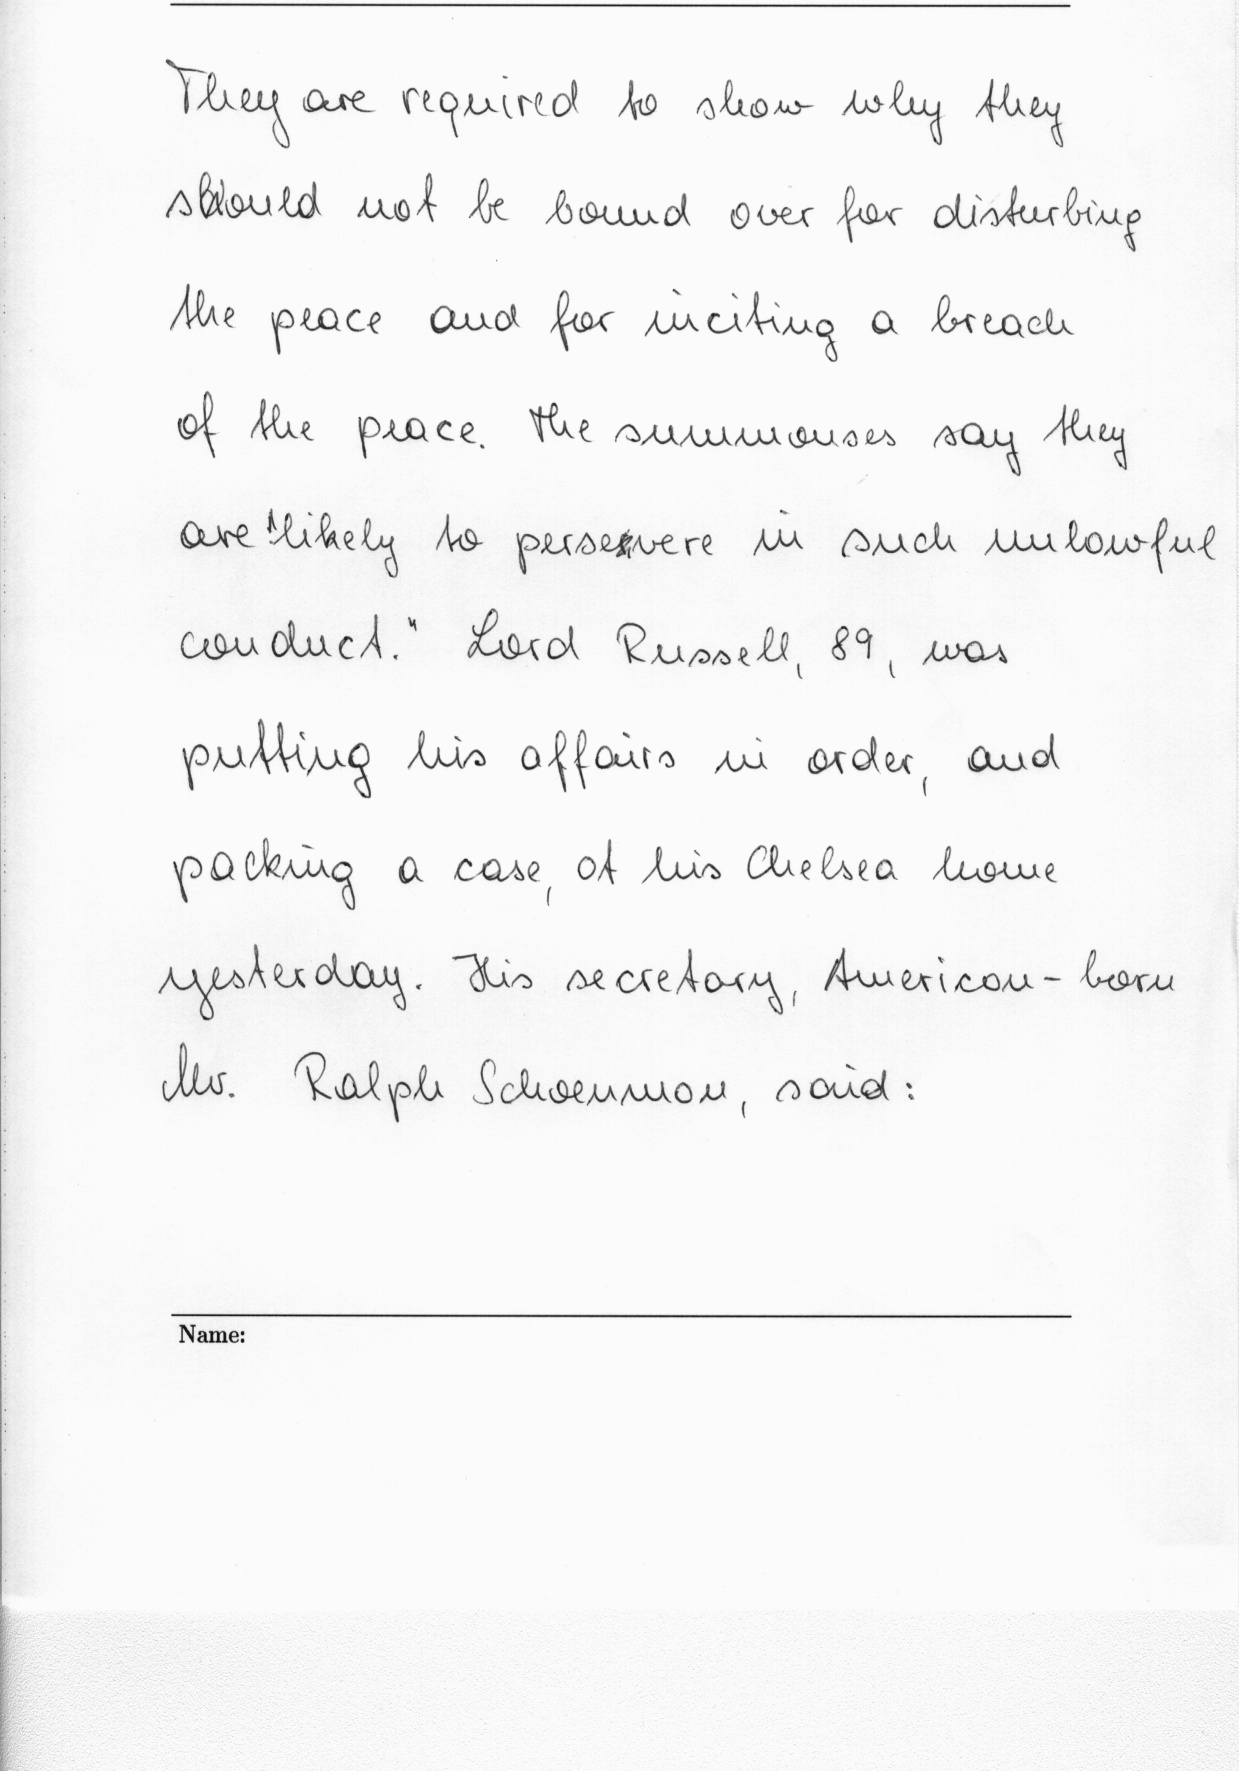 They are required to show why they
should not be bound over for disturbing
the peace and for inciting a breach
of the peace. The summonses say they
are "likely to persevere in such unlawful
conduct." Lord Russell, 89, was
putting his affairs in order, and
packing a case, at his Chelsea home
yesterday. His secretary, American-born
Mr. Ralph Schoenman, said:
Name: